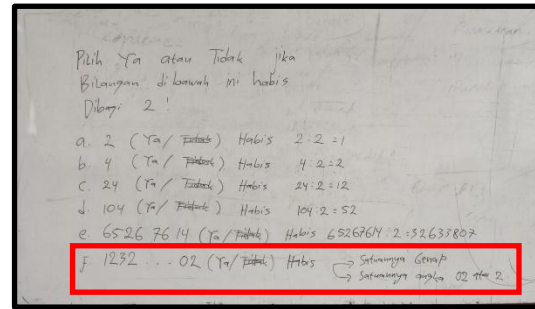 Pilih Ya atau Tidak jika
Bilangan dibawah ini habis
Dibagi 2 !
a. 2 (Ya/ Tidak) Habis 2:2 =1
b. 4 (Ya/ Tidak) Habis 4:2=2
c. 24 (Ya/ Tidak) Habis 24:2=12
d. 104 (Ya/ Tidak) Habis 104:2=52
e. 6526 76 14 (Ya/ Tidak) Habis 65267614:2=32633807
f. 1232 ... 02 (Ya/ Tidak) Habis → Satuannya Genap
→ Satuannya angka 02 atau 2